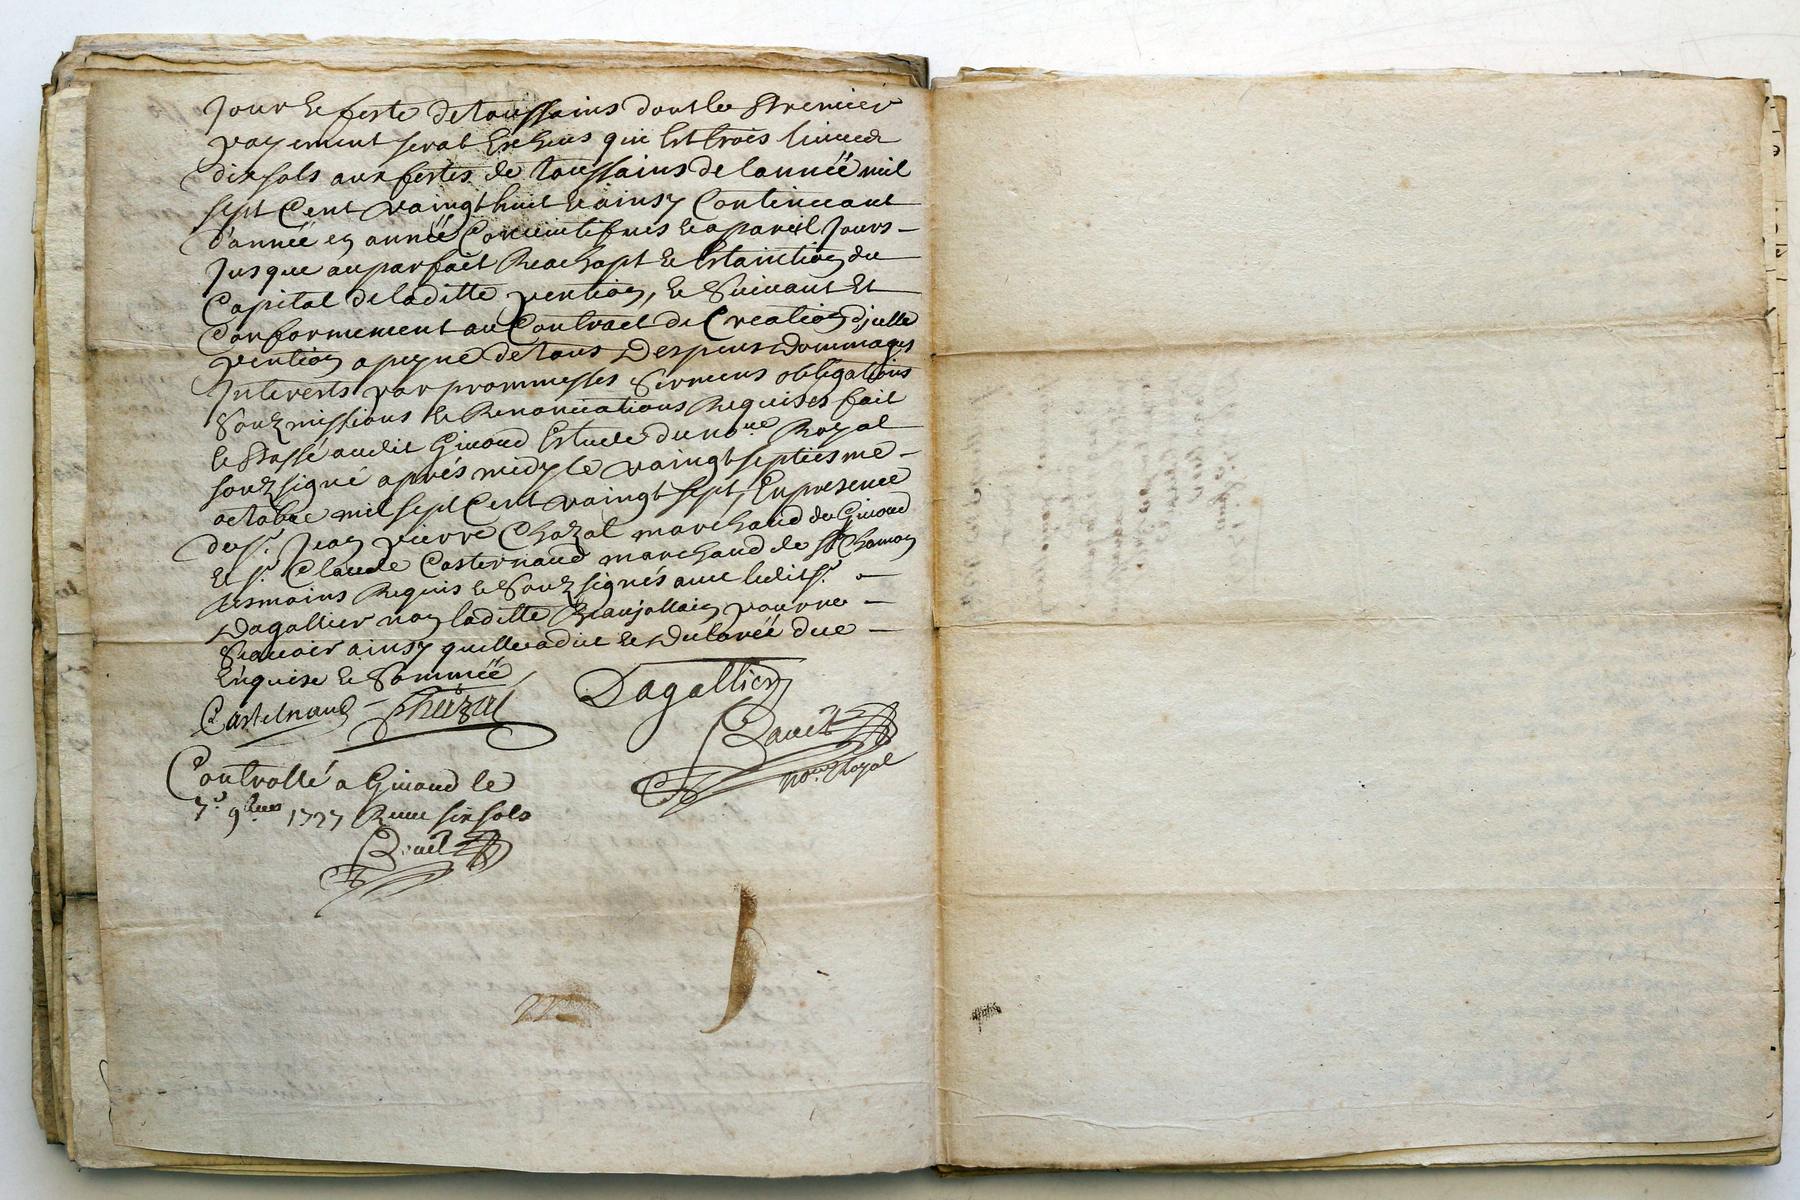 Jour & feste de toussains dont le premier
payement serat Escheus qui Est trois livres
dix sols aux festes de toussains de lannéé mil
sept Cent vaingt huit & ainsy Continuant
d'annéé en annéé Consecutifues & a pareil Jours
Jusque au parfait Reachapt & Estaintion du
Capital de laditte pention, & Suivant Et
Conformement au Contract de Creation d'jcelle
pention a peyne de tous Despens Dommages
Interests par prommesses Sermens obligations
Soubzmissions & Renonciations Requises fait
& Passé audit Givord Estude du no.re Royal
soubzsigné aprés midy le vaingt septiesme
octobre mil sept Cent vaingt sept, En presence
du Sr. Jean pierre Chazal marchand du Givord
Et Sr. Claude Castelnaud marchand de St Chamon
tesmoins Requis & Soubzsignés avec ledit Sr.
Dagallier non laditte Beaujollain pour ne
Scavoir ainsy quelle a dit & Declaréé due
Enquise & Somméé
Castelnaud Chazal Dagallier
no.re Royal
Controllé a Givord le
7e 9bre 1727 Receu six sols